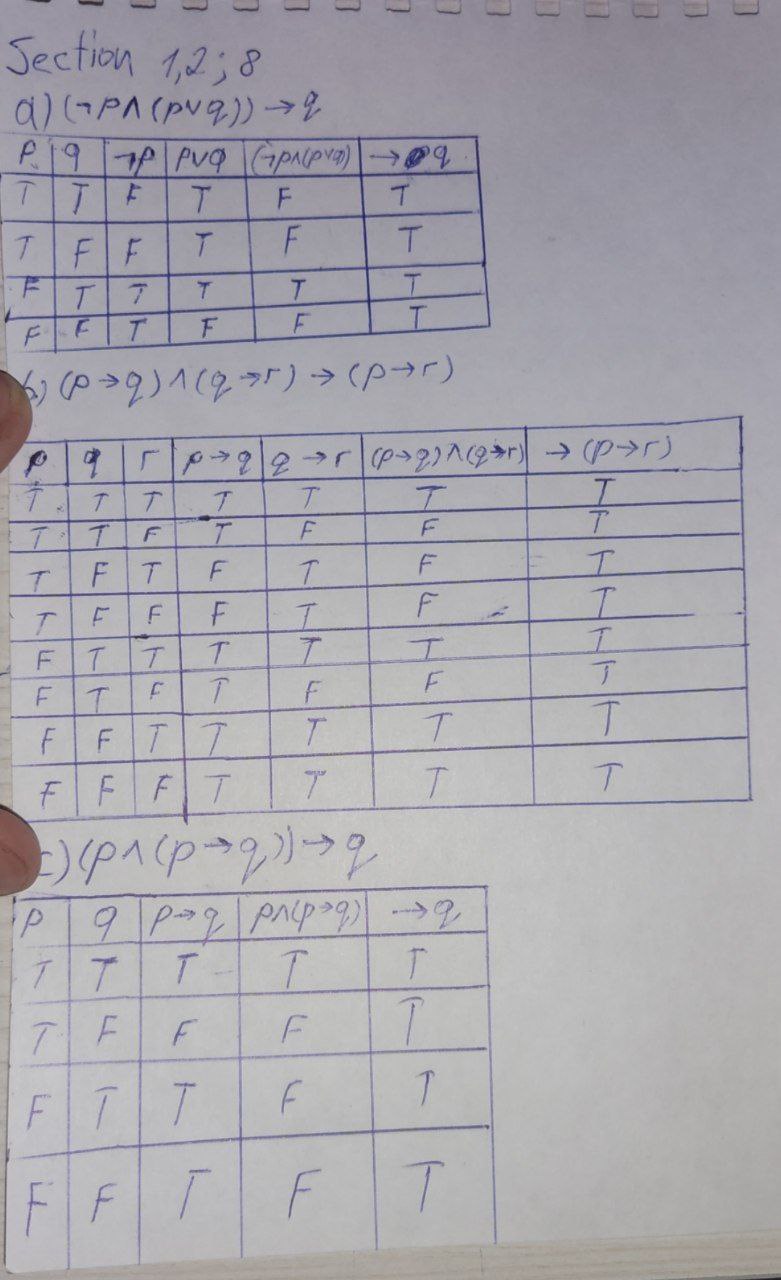 Section 1,2 ; 8
a) (¬p∧(p∨q)) → q
p q ¬p p∨q (¬p∧(p∨q) → q
T T F T F T
T F F T F T
F T T T T T
F F T F F T
b) (p→q)∧(q→r) → (p→r)
p q r p→q q→r (p→q)∧(q→r) → (p→r)
T T T T T T T
T T F T F F T
T F T F T F T
T F F F T F T
F T T T T T T
F T F T F F T
F F T T T T T
F F F T T T T
c) (p∧(p→q))→q
p q p→q p∧(p→q) →q
T T T T T
T F F F T
F T T F T
F F T F T